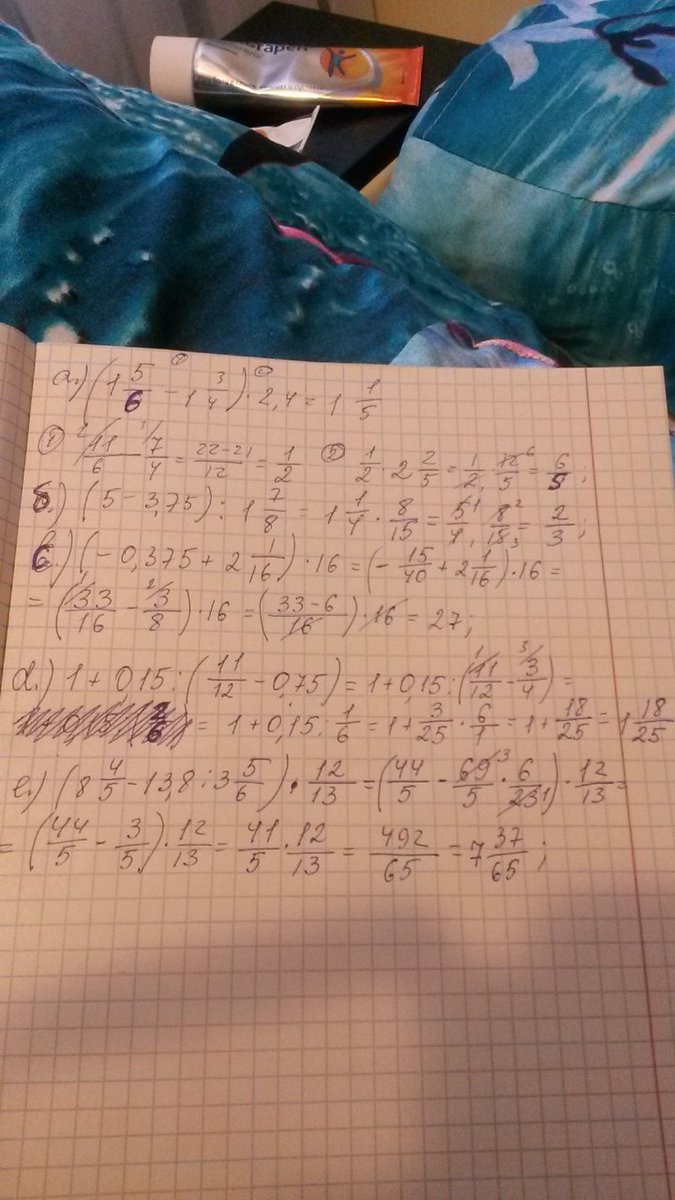 а.) (1 5/6 - 1 3/4) · 2,4 = 1 1/5
① 11/6 - 7/4 = 22-21/12 = 1/2 ② 1/2 · 2 2/5 = 1/2 · 12/5 = 6/5 ;
б.) (5 - 3,75) : 1 7/8 = 1 1/4 · 8/15 = 5/4 · 8/15 = 2/3 ;
в.) (- 0,375 + 2 1/16) · 16 = (- 15/40 + 2 1/16) · 16 =
= (33/16 - 3/8) · 16 = (33-6/16) · 16 = 27 ;
d.) 1 + 0,15 : (11/12 - 0,75) = 1 + 0,15 : (11/12 - 3/4) =
= 1 + 0,15 : 1/6 = 1 + 3/25 · 6/1 = 1 + 18/25 = 1 18/25
е.) (8 4/5 - 13,8 : 3 5/6) · 12/13 = (44/5 - 69/5 · 6/23) · 12/13 =
= (44/5 - 3/5) · 12/13 = 41/5 · 12/13 = 492/65 = 7 37/65 ;